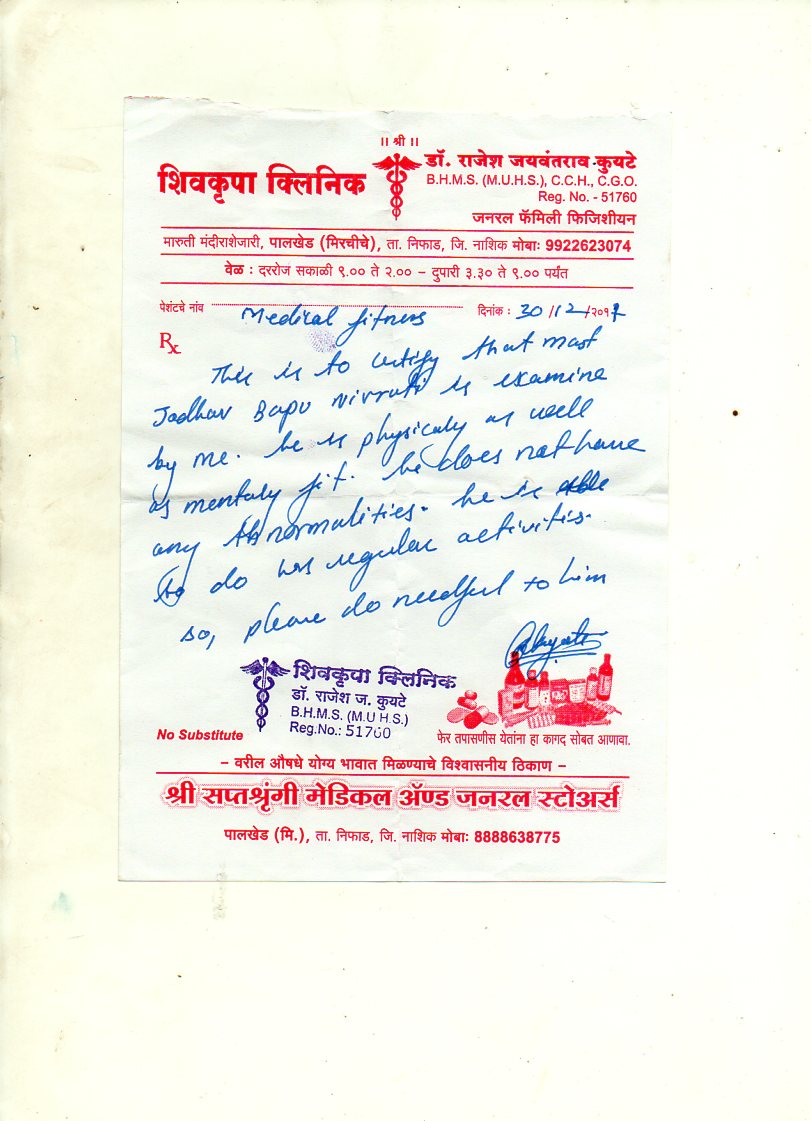 ॥ श्री ॥
शिवकृपा क्लिनिक
डॉ. राजेश जयवंतराव कुयटे
B.H.M.S. (M.U.H.S.), C.C.H., C.G.O.
Reg. No. - 51760
जनरल फॅमिली फिजिशीयन
मारुती मंदीराशेजारी, पालखेड (मिरचीचे), ता. निफाड, जि. नाशिक मोबाः 9922623074
वेळ : दररोज सकाळी ९.०० ते २.०० – दुपारी ३.३० ते ९.०० पर्यंत
पेशंटचे नांव Medical fitness दिनांक : 30/12/२०१
Rx
This is to certify that mast
Jadhav Bapu Nivruti is examine
by me. he is physicaly as well
as mentaly fit. he does not have
any Abnormalities. he is able
to do his regular activitis.
so, please do needful to him
शिवकृपा क्लिनिक
डॉ. राजेश ज. कुयटे
B.H.M.S. (M.U.H.S.)
Reg.No.: 51760
No Substitute
फेर तपासणीस येतांना हा कागद सोबत आणावा.
– वरील औषधे योग्य भावात मिळण्याचे विश्वासनीय ठिकाण –
श्री सप्तश्रृंगी मेडिकल ॲण्ड जनरल स्टोअर्स
पालखेड (मि.), ता. निफाड, जि. नाशिक मोबाः 8888638775